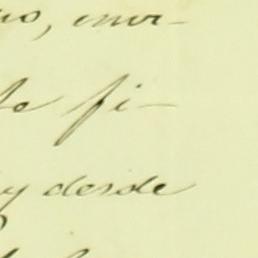 envi-
te fi-
y desde